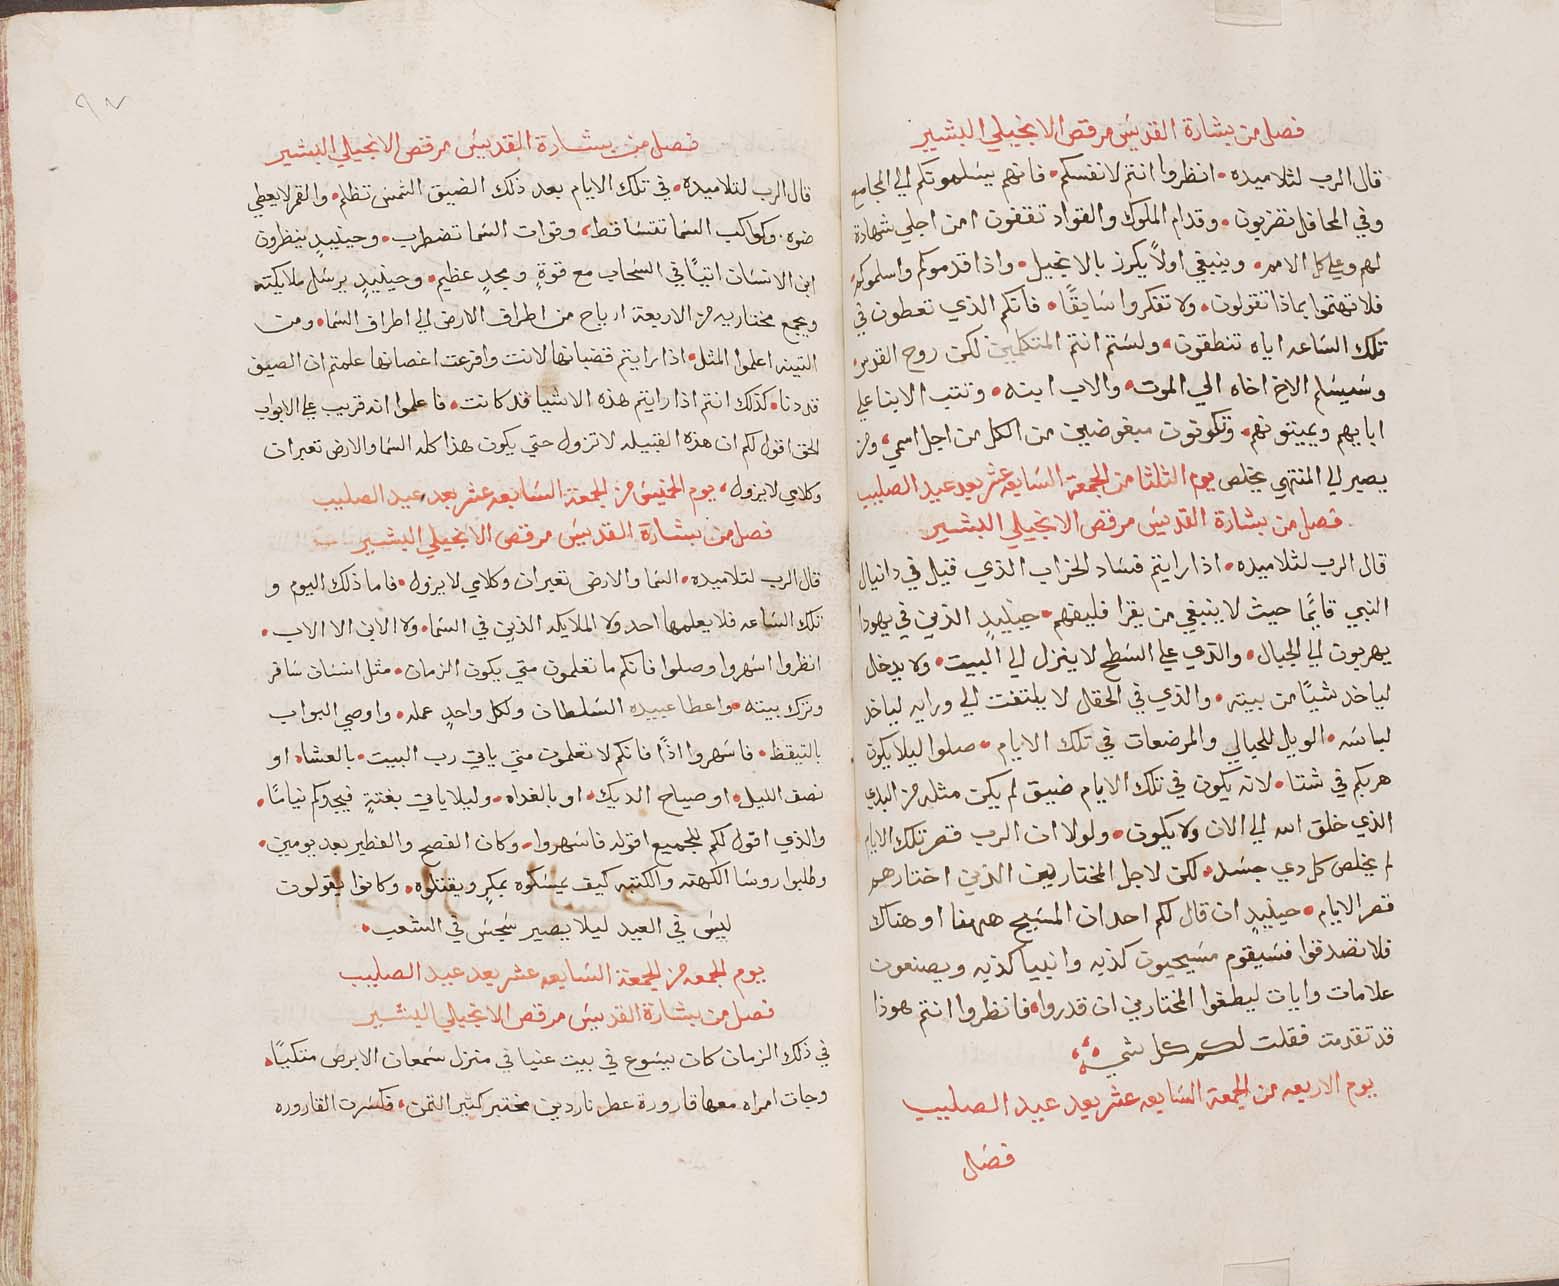 فصل من بشارة القديس مرقص الانجيلي البشير
قال الرب لتلاميده • انظروا انتم لانفسكم • فانهم يسلمونكم الي المجامع
وفي المحافل تضربون • وقدام الملوك والقواد تقفون امن اجلي شهادة
لهم وعلي كل الامم • وينبغي اولاً يكرز بالانجيل • واذا قدموكم واسلموكم •
فلا تهتموا بماذا تقولون • ولا تفكروا سابقًا • فانكم الذي تعطون في
تلك الساعه اياه تنطقون • ولستم انتم المتكلمين لكن روح القدس •
وسيسلم الاخ اخاه الي الموت • والاب ابنه • وتثب الابنا علي
اباييهم ويميتونهم • وتكونون مبغوضين من الكل من اجل اسمي • ومن
يصير الي المنتهي يخلص يوم الثلثا من الجمعة السابعه عشر بعد عيد الصليب
فصل من بشارة القديس مرقص الانجيلي البشير
قال الرب لتلاميده • اذا رايتم فساد الخراب الذي قيل في دانيال
النبي قايمًا حيث لا ينبغي من يقرا فليفهم • حينيدٍ الذين في يهودا
يهربون الي الجبال • والذي علي السطح لا ينزل الي البيت • ولا يدخل
لياخد شيًا من بيته • والذي في الحقل لا يلتفت الي ورايه لياخد
لباسه • الويل للحبالي والمرضعات في تلك الايام • صلوا ليلا يكون
هربكم في شتا • لانه يكون في تلك الايام ضيق لم يكن مثله من البدي
الذي خلق الله الي الان ولا يكون • ولولا ان الرب قصر تلك الايام
لم يخلص كل دي جسد • لكن لاجل المختارين الذين اختارهم
قصر الايام • حينيدٍ ان قال لكم احد ان المسيح ههنا او هناك
فلا تصدقوا فسيقوم مسيحيون كذبه وانبيا كذبه ويصنعون
علامات وايات ليطغوا المختارين ان قدروا • فانظروا انتم هوذا
قد تقدمت فقلت لكم كل شي
يوم الاربعه من الجمعة السابعه عشر بعد عيد الصليب
فصل
٩٧
فصل من بشارة القديس مرقص الانجيلي البشير
قال الرب لتلاميده • في تلك الايام بعد ذلك الضيق الشمس تظلم • والقمر لا يعطي
ضوه • وكواكب السما تتساقط • وقوات السما تضطرب • وحينيدٍ ينظرون
ابن الانسان اتيًا في السحاب مع قوةٍ ومجدٍ عظيم • وحينيدٍ يرسل ملايكته
ويجمع مختاريه من الاربعة ارياح من اطراف الارض الي اطراف السما • ومن
التينه اعلموا المثل • اذا رايتم قضبانها لانت وافرعت اغصانها علمتم ان الصيف
قد دنا • كذلك انتم اذا رايتم هذه الاشيا قد كانت • فاعلموا انه قريب علي الابواب
الحق اقول لكم ان هذه القبيله لا تزول حتي يكون هذا كله السما والارض تعبران
وكلامي لا يزول • يوم الخميس من الجمعة السابعه عشر بعد عيد الصليب
فصل من بشارة القديس مرقص الانجيلي البشير
قال الرب لتلاميده • السما والارض تعبران وكلامي لا يزول • فاما ذلك اليوم و
تلك الساعه فلا يعلمها احد ولا الملايكه الذين في السما • ولا الابن الا الاب •
انظروا اسهروا وصلوا فانكم ما تعلمون متي يكون الزمان • مثل انسان سافر
وترك بيته • واعطا عبيده السلطان ولكل واحدٍ عمله • واوصي البواب
بالتيقظ • فاسهروا اذًا فانكم لا تعلمون متي ياتي رب البيت • بالعشا • او
نصف الليل • او صياح الديك • او بالغداه • وليلا ياتي بغتةٍ فيجدكم نيامًا •
والذي اقول لكم للجميع اقوله فاسهروا • وكان الفصح والفطير بعد يومين •
وطلبوا روسا الكهنه والكتبه كيف يمسكوه بمكرٍ ويقتلوه • وكانوا يقولون
ليس في العيد ليلا يصير سجس في الشعب •
يوم الجمعه من الجمعة السابعه عشر بعد عيد الصليب
فصل من بشارة القديس مرقص الانجيلي البشير
في ذلك الزمان كان يسوع في بيت عنيا في منزل سمعان الابرص متكيًا •
وجات امراه معها قارورة عطر ناردين مختبر كثير الثمن • فكسرت القاروره